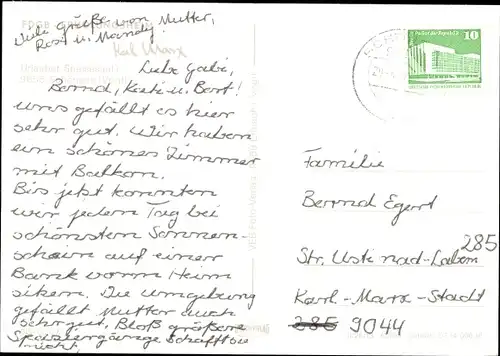 Viele Grüße von Mutter,
Rosi u. Mandy!
Karl Marx
Liebe Gabi,
Bernd, Kati u. Bert!
uns gefällt es hier
sehr gut. Wir haben
ein schönes Zimmer
mit Balkon.
Bis jetzt konnten
wir jeden Tag bei
schönstem Sonnen-
schein auf einer
Bank vorm Heim
sitzen. Die Umgebung
gefällt Mutter auch
sehr gut, Bloß größere
Spaziergänge schafft sie
nicht,
10
Familie
Bernd Egert
285
Str. Usti nad-Labem
Karl-Marx-Stadt
285 9044